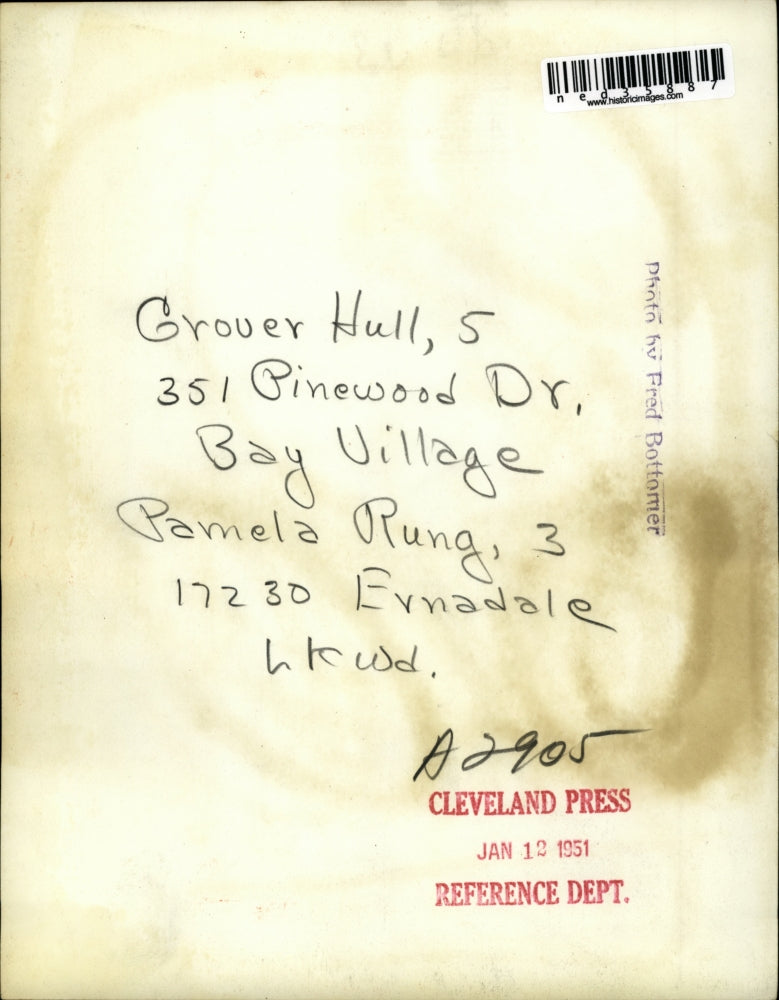 ned35887
www.historicimages.com
Photo by Fred Bottomer
Grover Hull, 5
351 Pinewood Dr.
Bay Village
Pamela Rung, 3
17230 Ernadale
Lkwd.
A2905
CLEVELAND PRESS
JAN 12 1951
REFERENCE DEPT.